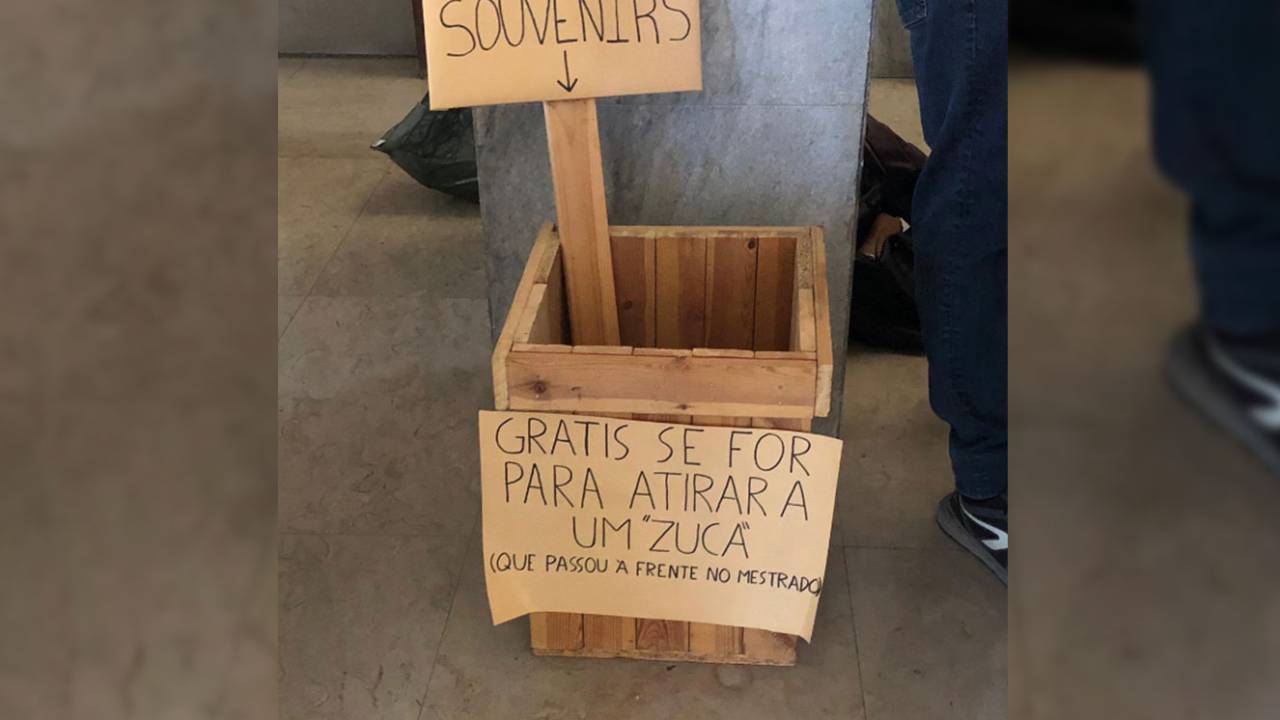 SOUVENIRS
GRATIS SE FOR
PARA ATIRAR A
UM "ZUCA"
(QUE PASSOU À FRENTE NO MESTRADO)